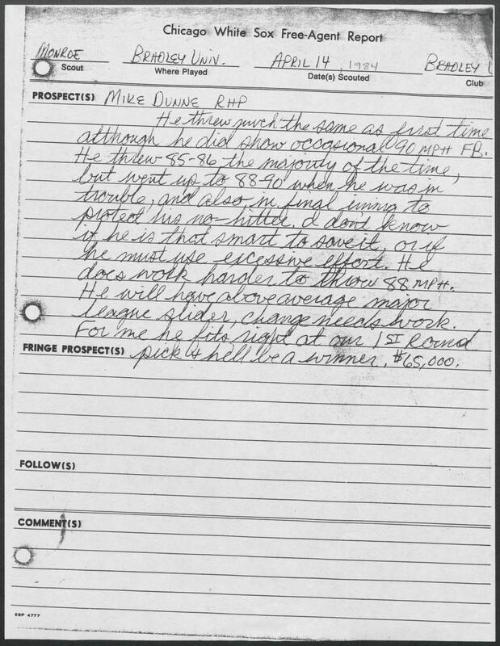 Chicago White Sox Free-Agent Report
MONROE BRADLEY UNIV. APRIL 14, 1984 BRADLEY
Scout Where Played Date(s) Scouted Club
PROSPECT(S) MIKE DUNNE RHP
He threw much the same as first time
although he did show occasional 90 MPH FB.
He threw 85-86 the majority of the time,
but went up to 88-90 when he was in
trouble, and also in final inning to
protect his no-hitter. I don't know
if he is that smart to save it, or if
he must use excessive effort. He
does work harder to throw 88 MPH.
He will have above average major
league slider, change needs work.
For me he fits right at our 1ST Round
FRINGE PROSPECT(S) pick & he'll be a winner. $65,000.
FOLLOW(S)
COMMENT(S)